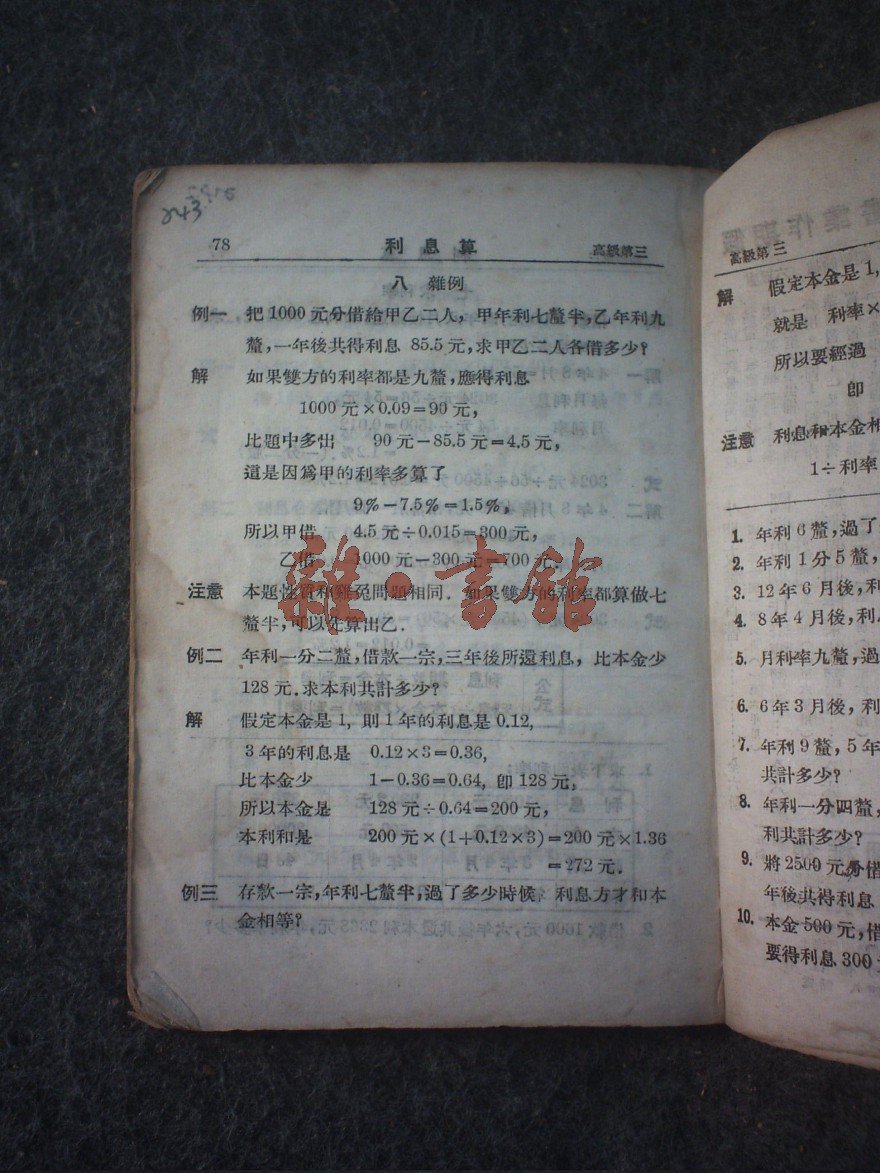 243
78 利息算 高級第三
八 雜例
例一 把1000元分借給甲乙二人，甲年利七釐半，乙年利九
釐，一年後共得利息 85.5元，求甲乙二人各借多少？
解 如果雙方的利率都是九釐，應得利息
1000元×0.09＝90元，
比題中多出 90元－85.5元＝4.5元，
這是因爲甲的利率多算了
9%－7.5%＝1.5%，
所以甲借 4.5元÷0.015＝300元，
乙借 1000元－300元＝700元．
注意 本題性質和雞兔問題相同．如果雙方的利率都算做七
釐半，可以先算出乙．
例二 年利一分二釐，借款一宗，三年後所還利息，比本金少
128元．求本利共計多少？
解 假定本金是1，則1年的利息是0.12，
3年的利息是 0.12×3＝0.36，
比本金少 1－0.36＝0.64，即128元，
所以本金是 128元÷0.64＝200元，
本利和是 200元×(1＋0.12×3)＝200元×1.36
＝272元．
例三 存款一宗，年利七釐半，過了多少時候，利息方才和本
金相等？
雜·書館
高級第三
解 假定本金是1，
就是 利率×
所以要經過
即
注意 利息和本金相
1÷利率
1. 年利6釐，過了
2. 年利1分5釐，
3. 12年6月後，利
4. 8年4月後，利
5. 月利率九釐，過
6. 6年3月後，利
7. 年利9釐，5年
共計多少？
8. 年利一分四釐，
利共計多少？
9. 將2500元分借
年後共得利息
10. 本金500元，借
要得利息300元